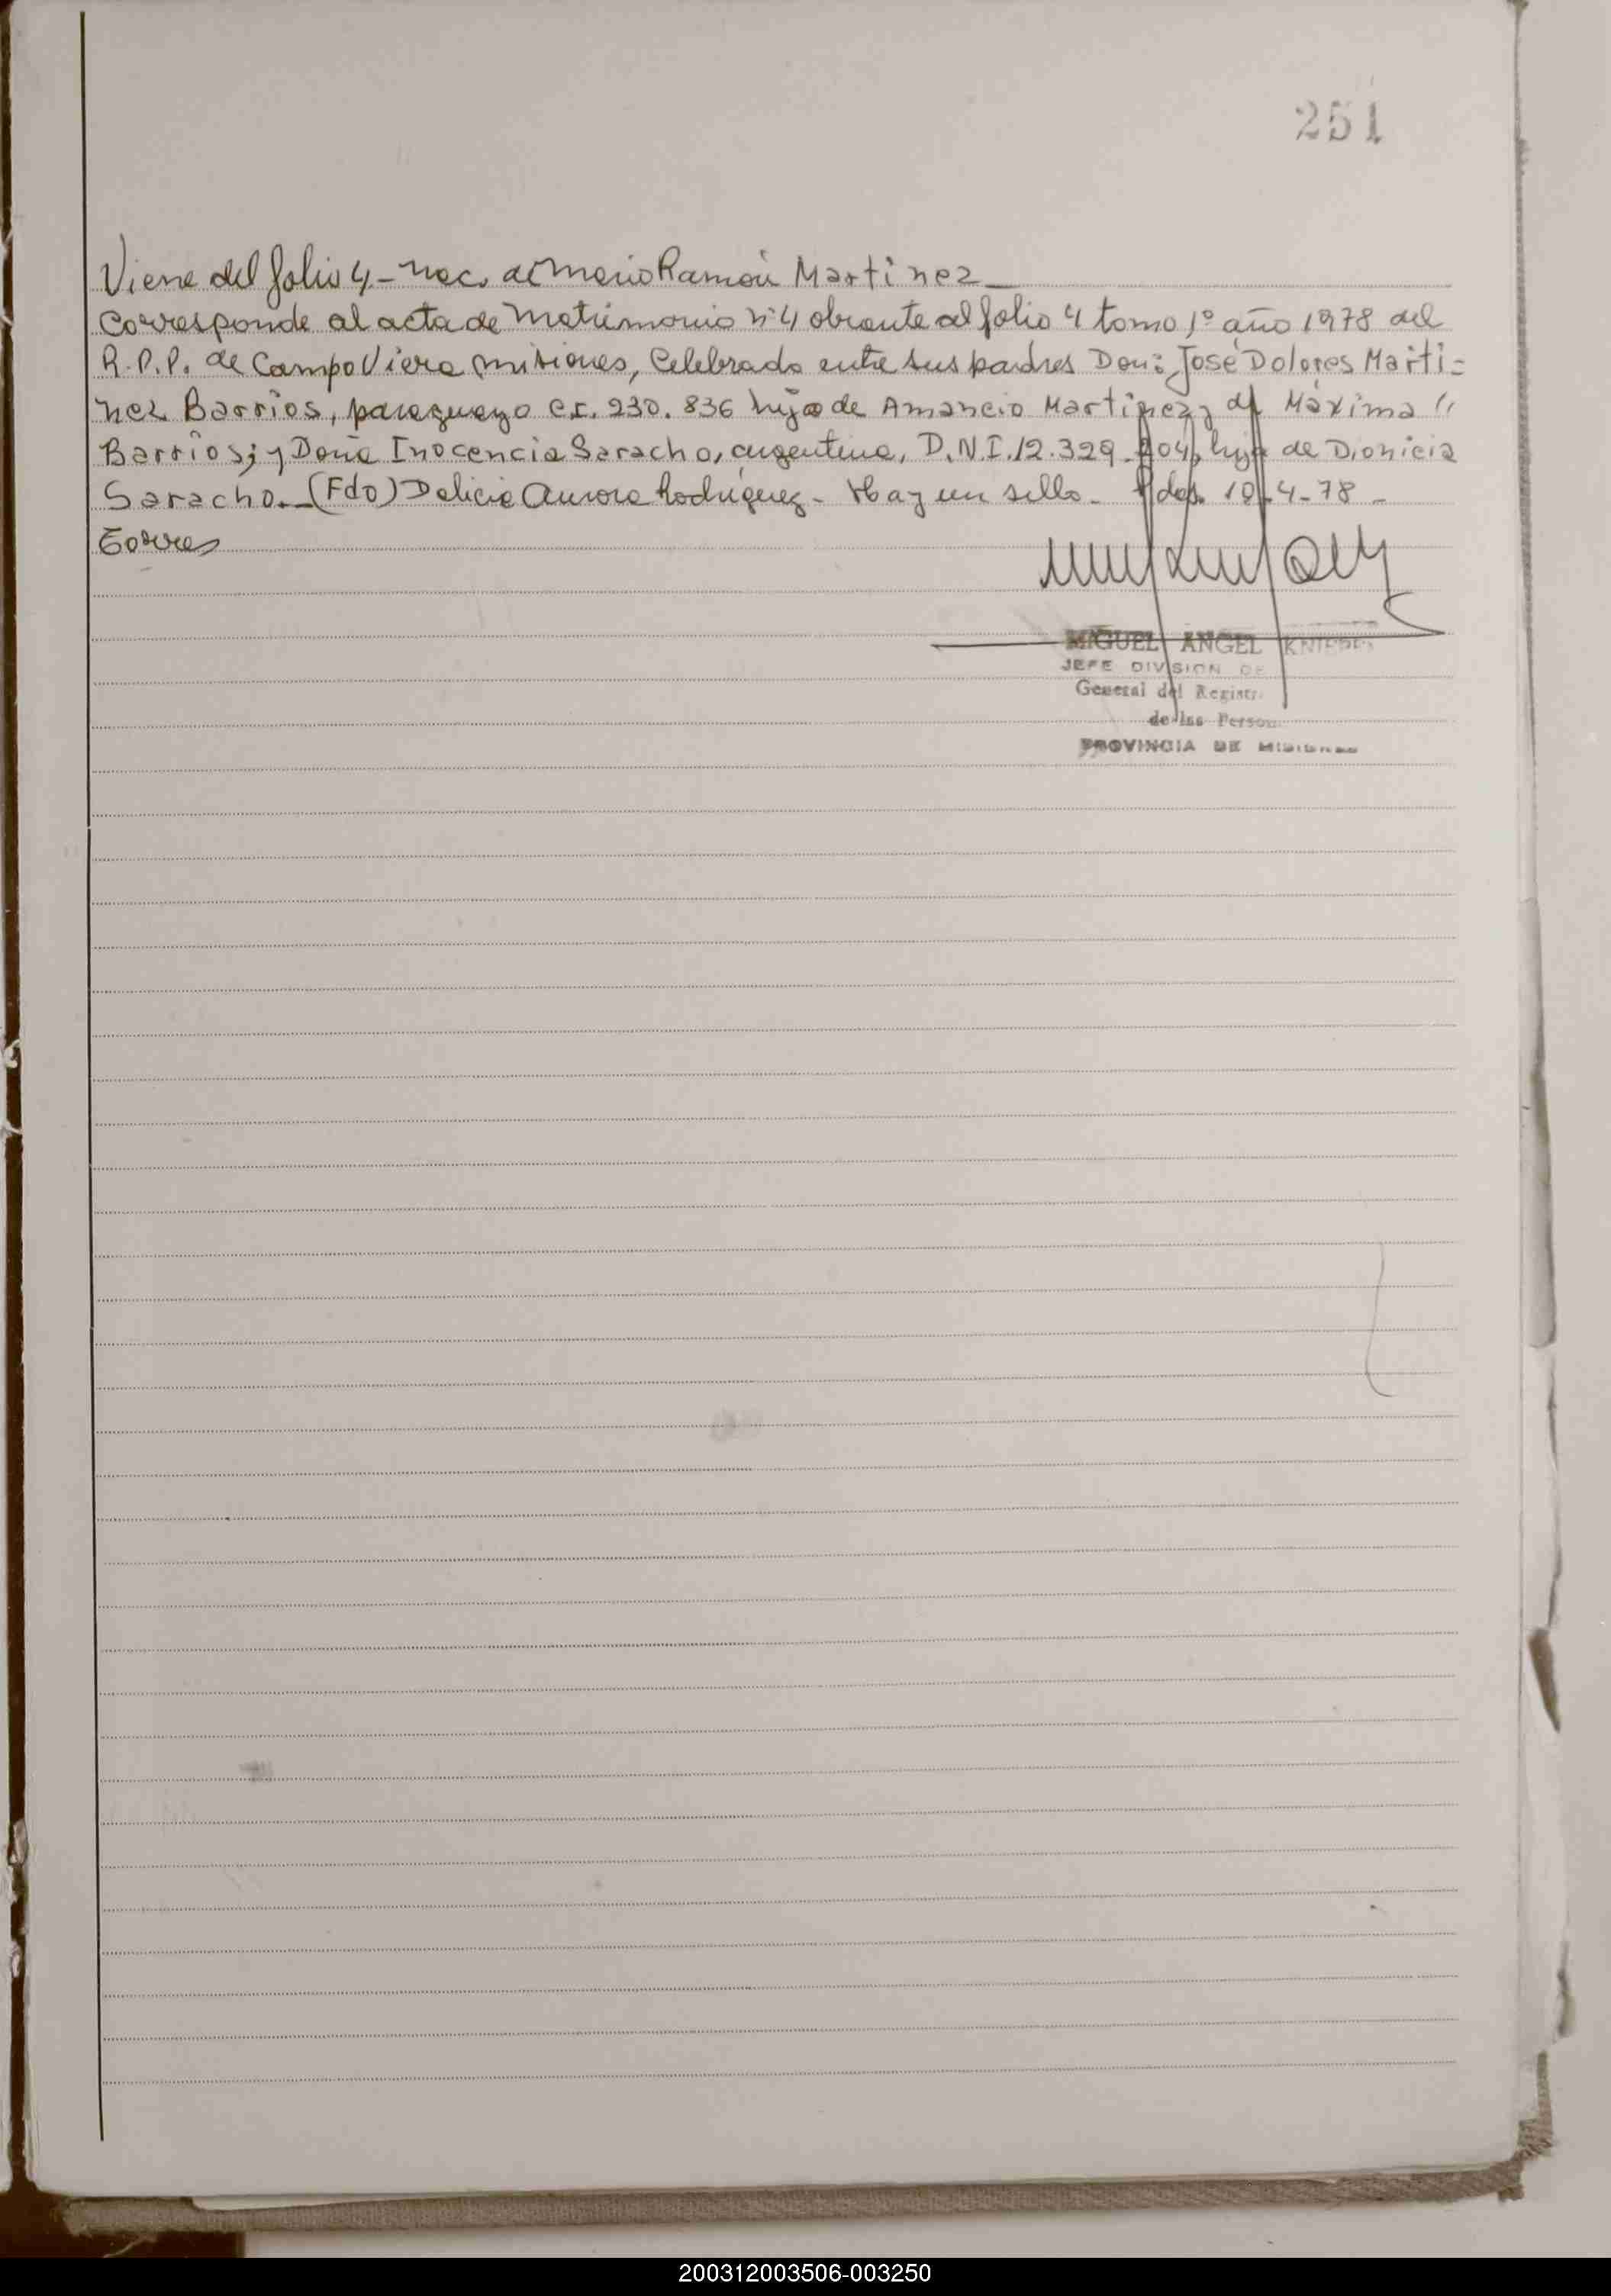 251
Viene del folio 4 - Nac. de Mario Ramón Martinez
Corresponde al acta de Matrimonio nº 4 obrante al folio 4 tomo 1º año 1978 del
R.P.P. de Campo Viera Misiones, Celebrado entre sus padres Don: José Dolores Marti=
nez Barrios, paraguayo C.I. 230.836 hijo de Amancio Martinez y de Máxima //
Barrios; y Doña Inocencia Saracho, argentina, D.N.I. 12.329.204, hija de Dionicia
Saracho.- (Fdo) Delicia Aurora Rodriguez - Hay un sello - Pdas. 19-4-78 -
Torres
MIGUEL ANGEL
JEFE DIVISION DE
General del Registr
de las Person
PROVINCIA DE MISIONES
200312003506-003250